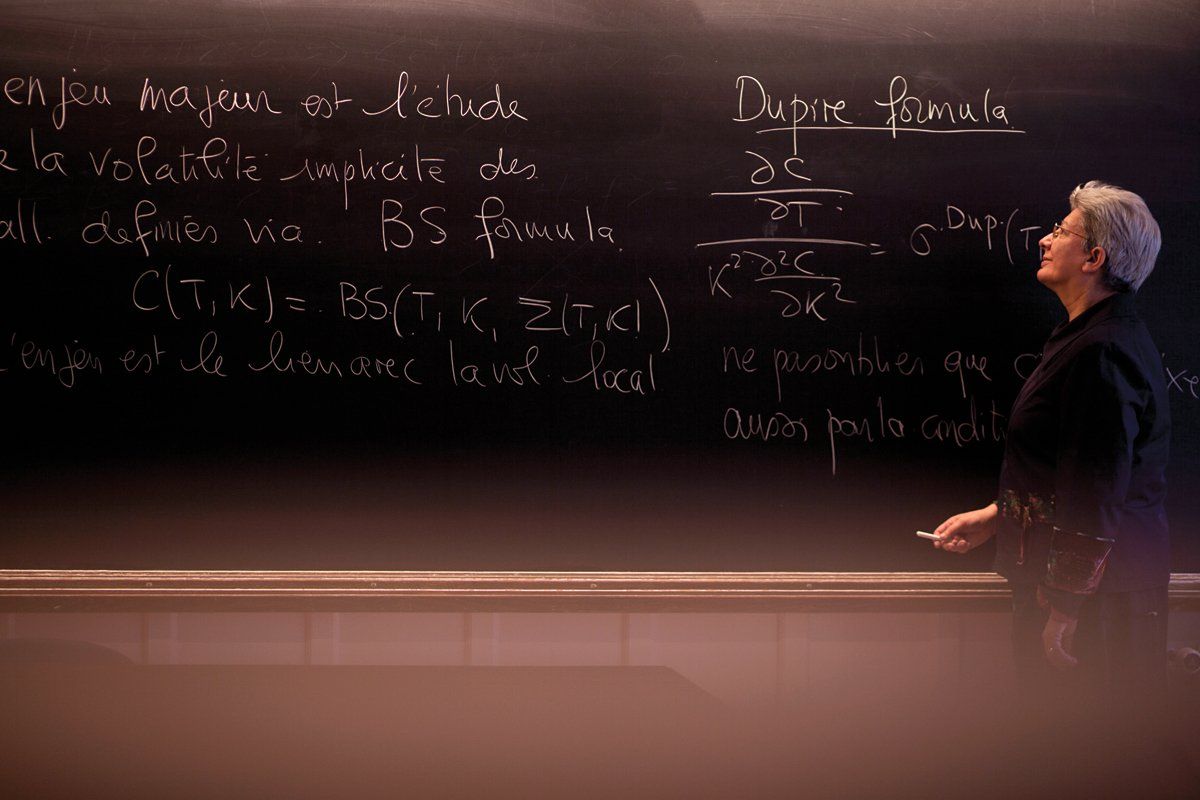 enjeu majeur est l'étude
la volatilité implicite des
all. définies via. BS formula.
C(T, K) = BS(T, K, Σ(T, K))
l'enjeu est le lien avec la vol. local
Dupire formula
∂C
∂T
K² ∂²C
∂K²
= σ Dup. (T
ne pas oublier que
aussi par la conditi